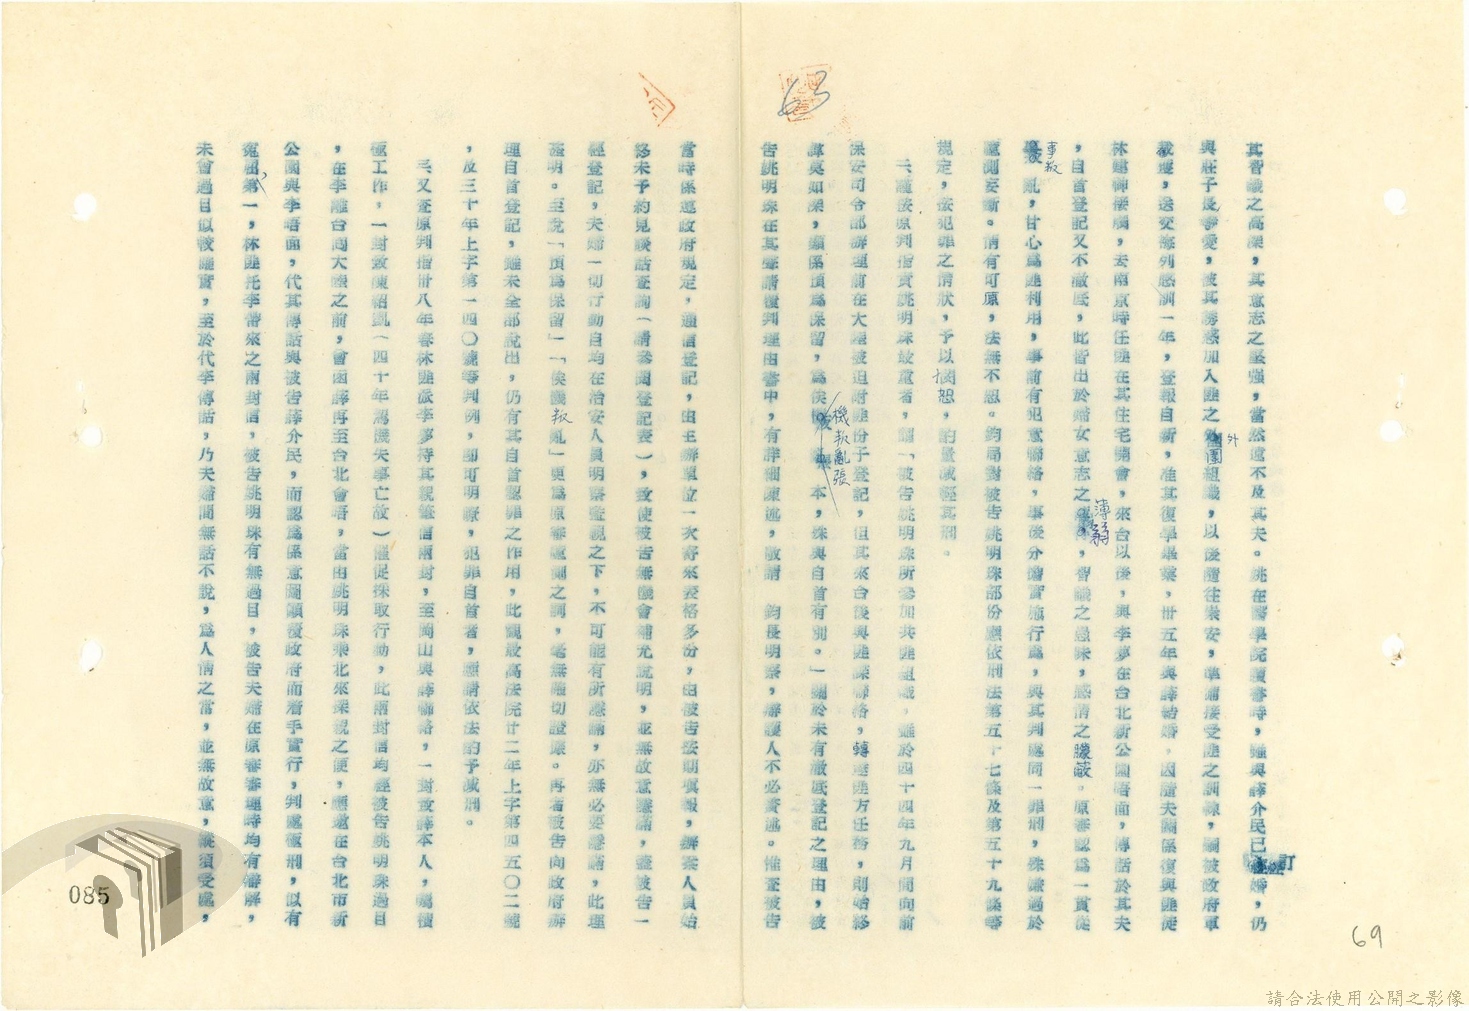 63
其智識之高深，其意志之堅強，當然遠不及其夫。姚在醫學院讀書時，雖與薛介民已訂婚，仍
與莊子長學愛，被其誘惑加入匪之外圍組織，以後隨往崇安，準備接受匪之訓練，嗣被政府軍
截獲，送交 感訓一年，登報自新，准其復學畢業，卅五年與薛結婚，因隨夫關係復與匪徒
林建 ，去南京時任匪在其住宅開會，來台以後，與李夢在台北新公園晤面，傳話於其夫
，自首登記又不澈底，此皆出於婦女意志之薄弱，智識之愚昧，感情之矇蔽。原審認為一貫從
事叛亂，甘心為匪利用，事前有犯意聯絡，事後分擔實施行為，與其判處同一罪刑，殊嫌過於
情有可原，法無不恕。鈞局對被告姚明珠部份應依刑法第五十七條及第五十九條等
規定，按犯罪之情狀，予以憫恕，酌量減輕其刑。
二、謹按原判指責姚明珠最重者，謂「被告姚明珠所參加共匪組織，雖於四十四年九月間向前
保安司令部辦理前在大陸被迫附匪份子登記，但其來台後與匪諜聯絡，轉達匪方任務，則始終
諱莫如深，顯係預為保留，為俟機叛亂張本，殊與自首有別。」關於未有澈底登記之理由，被
告姚明珠在其聲請復判理由書中，有詳細陳述，敬請 鈞長明察，辯護人不必贅述。惟查被告
當時係遵政府規定，通信登記，由主辦單位一次寄來表格多份，由被告按期填報，辦案人員始
終未予約見談話查詢（請參閱登記表），致使被告無機會補充說明，並無故意隱滿，查被告一
經登記，夫婦一切行動自均在治安人員明察監視之下，不可能有所隱瞞，亦無必要隱瞞，此理
至明。至說「預為保留」「俟機叛亂」更為原審臆測之詞，毫無確切證據。再者被告向政府辦
理自首登記，雖未全部說出，仍有其自首認罪之作用，此觀最高法院廿二年上字第四五〇二號
，及三十年上字第一四〇號等判例，即可明瞭，犯罪自首者，應請依法酌予減刑。
三、又查原判指卅八年春林匪派李夢持其親筆信兩封，至岡山與薛聯絡，一封致薛本人，囑積
極工作，一封致陳紹凱（四十年為機失事亡故）催促採取行動，此兩封信均經被告姚明珠過目
，在李離台回大陸之前，會函薛再至台北會晤，當由姚明珠乘北來探親之便，順道在台北市新
公園與李晤面，代其傳話與被告薛介民，而認為係意圖顛覆政府而着手實行，判處極刑，似有
冤屈。第一，林匪托李帶來之兩封信，被告姚明珠有無過目，被告夫婦在原審審理時均有辯解，
未曾過目似較確實，至於代李傳話，乃夫婦間無話不說，為人情之常，並無故意，縱須受處，
085
69
請合法使用公開之影像